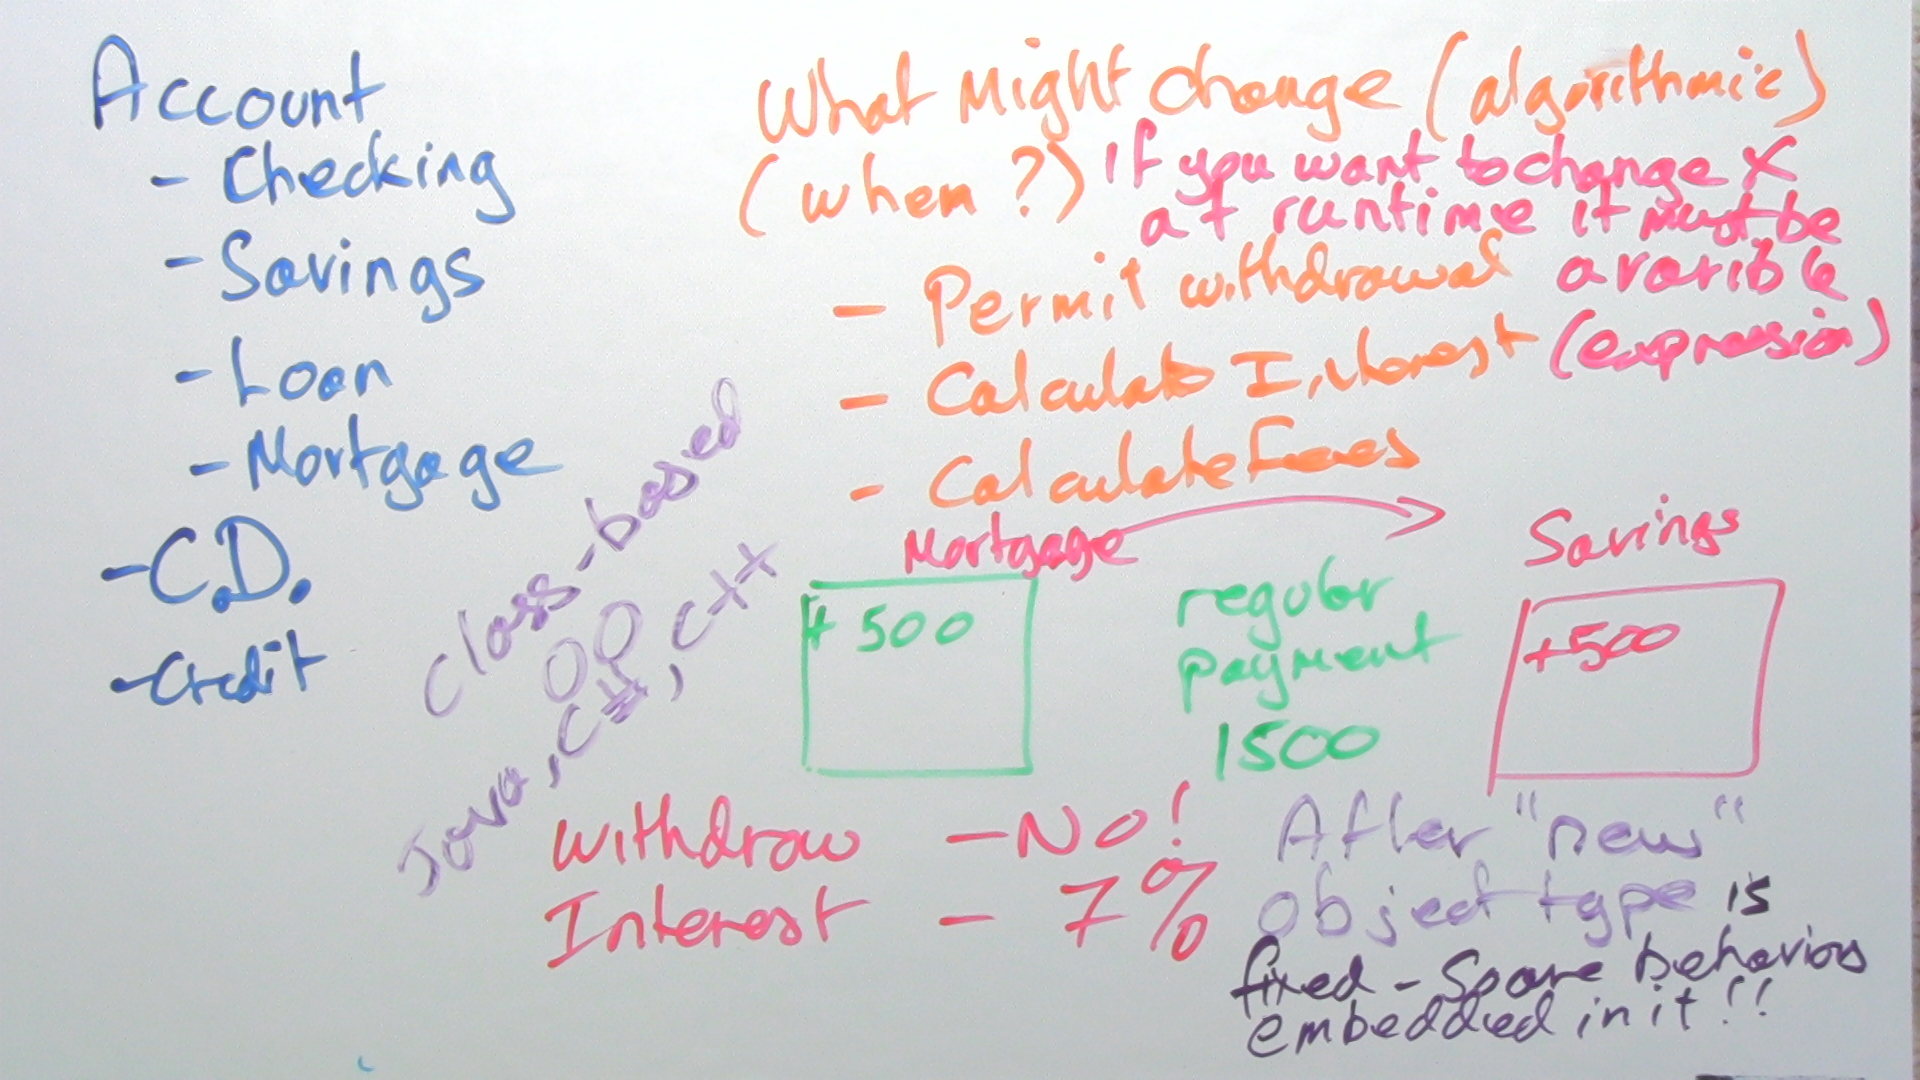 Account
- Checking
- Savings
- Loan
- Mortgage
- C.D.
- Credit
Class-based
OO
Java, C#, C++
What Might change (algorithmic)
(when?)
If you want to change X
at runtime it must be
a varible
(expression)
- Permit withdrawal
- Calculate Interest
- Calculate Fees
Mortgage
+ 500
regular
payment
1500
Savings
+500
withdraw - No!
Interest - 7%
After "new"
object type is
fixed - So are behaviors
embedded in it!!